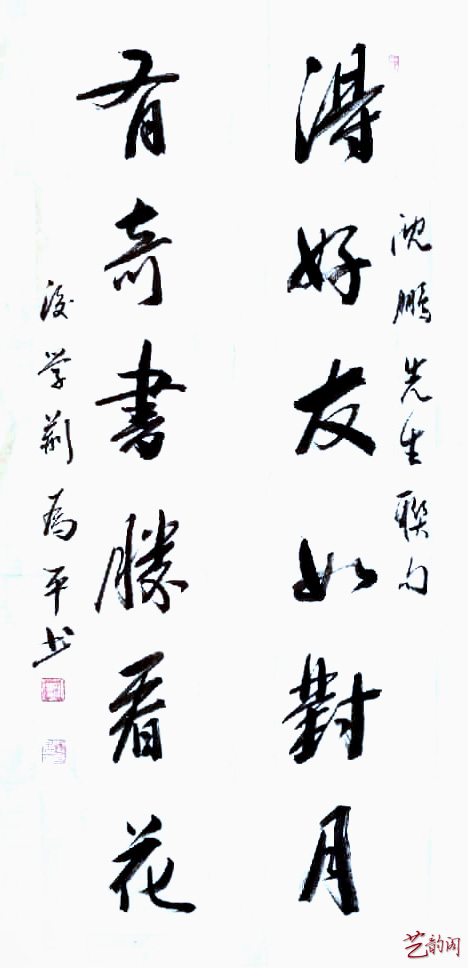 沈鹏先生联句
得好友如對月
有奇書勝看花
後学荆为平书
艺韵阁